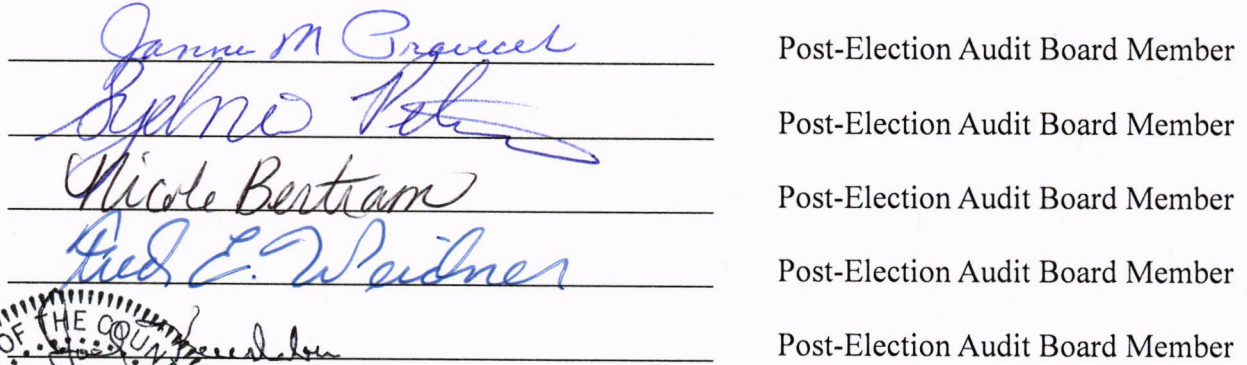 M Post-Election Audit Board Member
Post-Election Audit Board Member
Nicole Bertram Post-Election Audit Board Member
E. Weidner Post-Election Audit Board Member
OF THE COUN Post-Election Audit Board Member